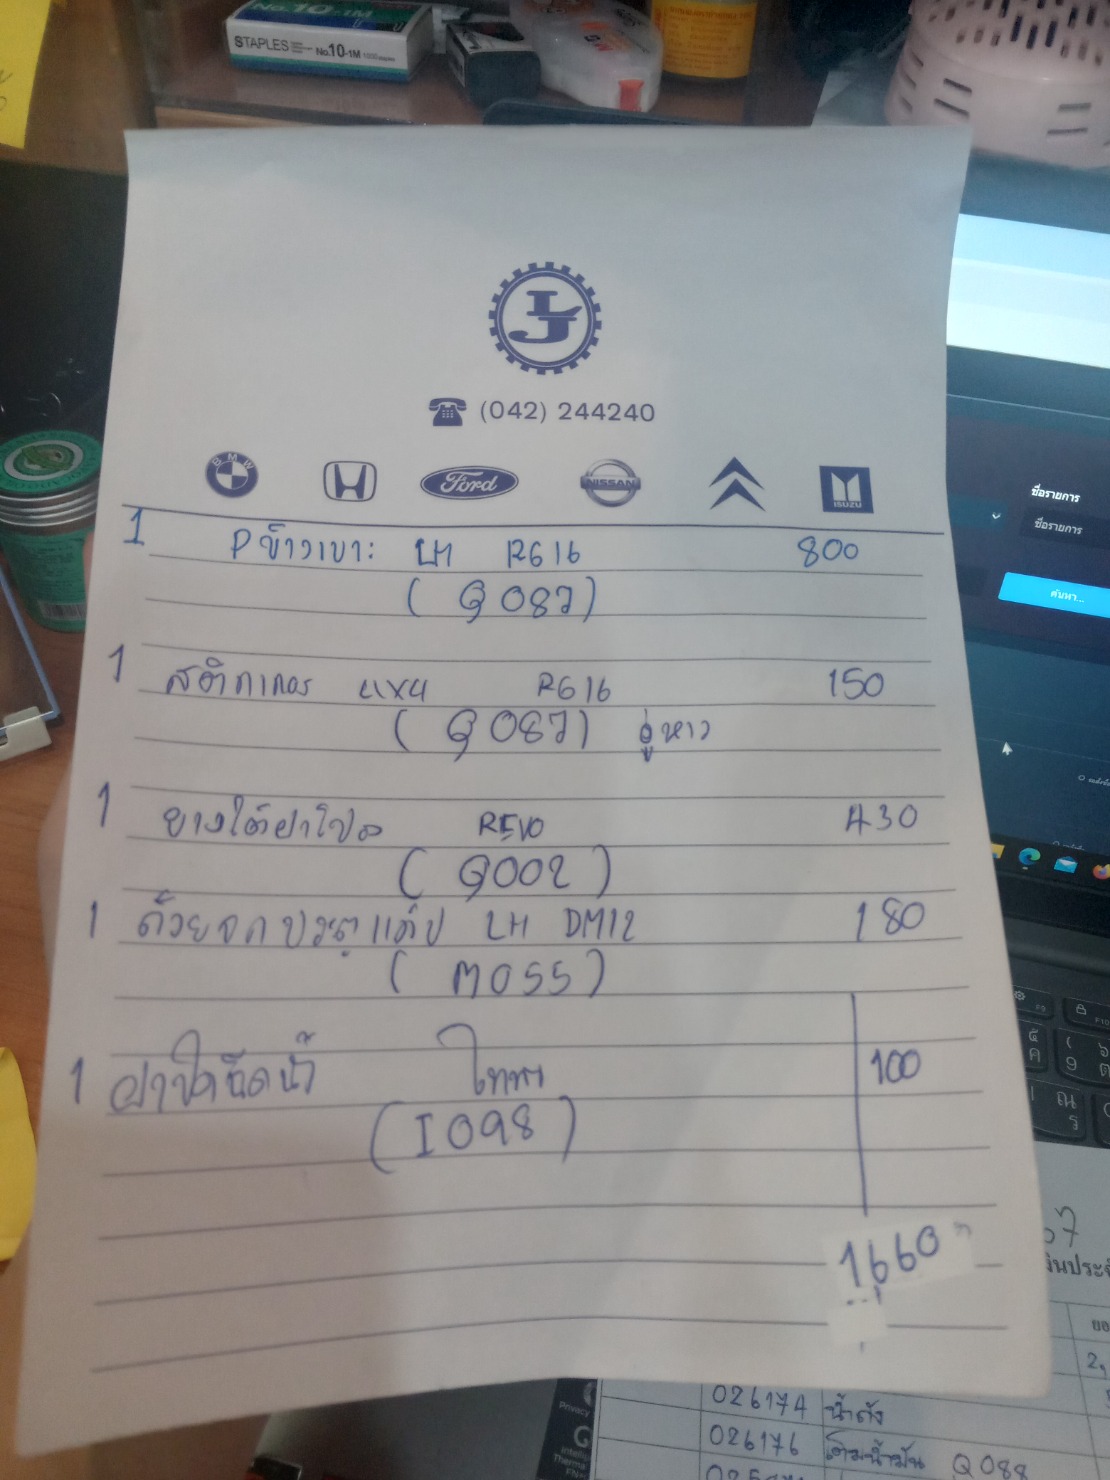 No.10-1M
STAPLES No.10-1M
(042) 244240
BMW
Ford
NISSAN
ISUZU
1 P ข้าวเบาะ LH RG16 800
(Q087)
1 สติกเกอร์ 4x4 RG16 150
(Q087) อู่หาว
1 ยางใต้ฝาโปง REVO 430
(Q002)
1 ถ้วยจกประตูแค๊ป LH DM12 180
(M055)
1 ฝาปิดฉีดน้ำ ไททา 100
(I098)
1660
ชื่อรายการ
ชื่อรายการ
ค้นหา...
026174 น้ำถัง
026176 เติมน้ำมัน Q088